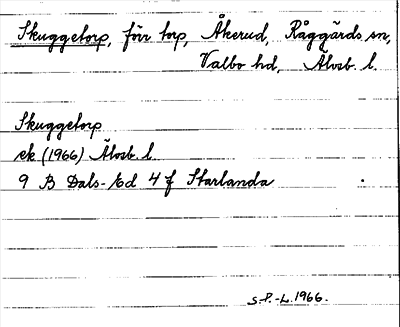 Skuggetorp, förr torp, Åkerud, Råggärds sn,
Valbo hd, Älvsb. l.
Skuggetorp
ek (1966) Älvsb. l.
9 B Dals-Ed 4 f Starlanda
S.P.-L. 1966.